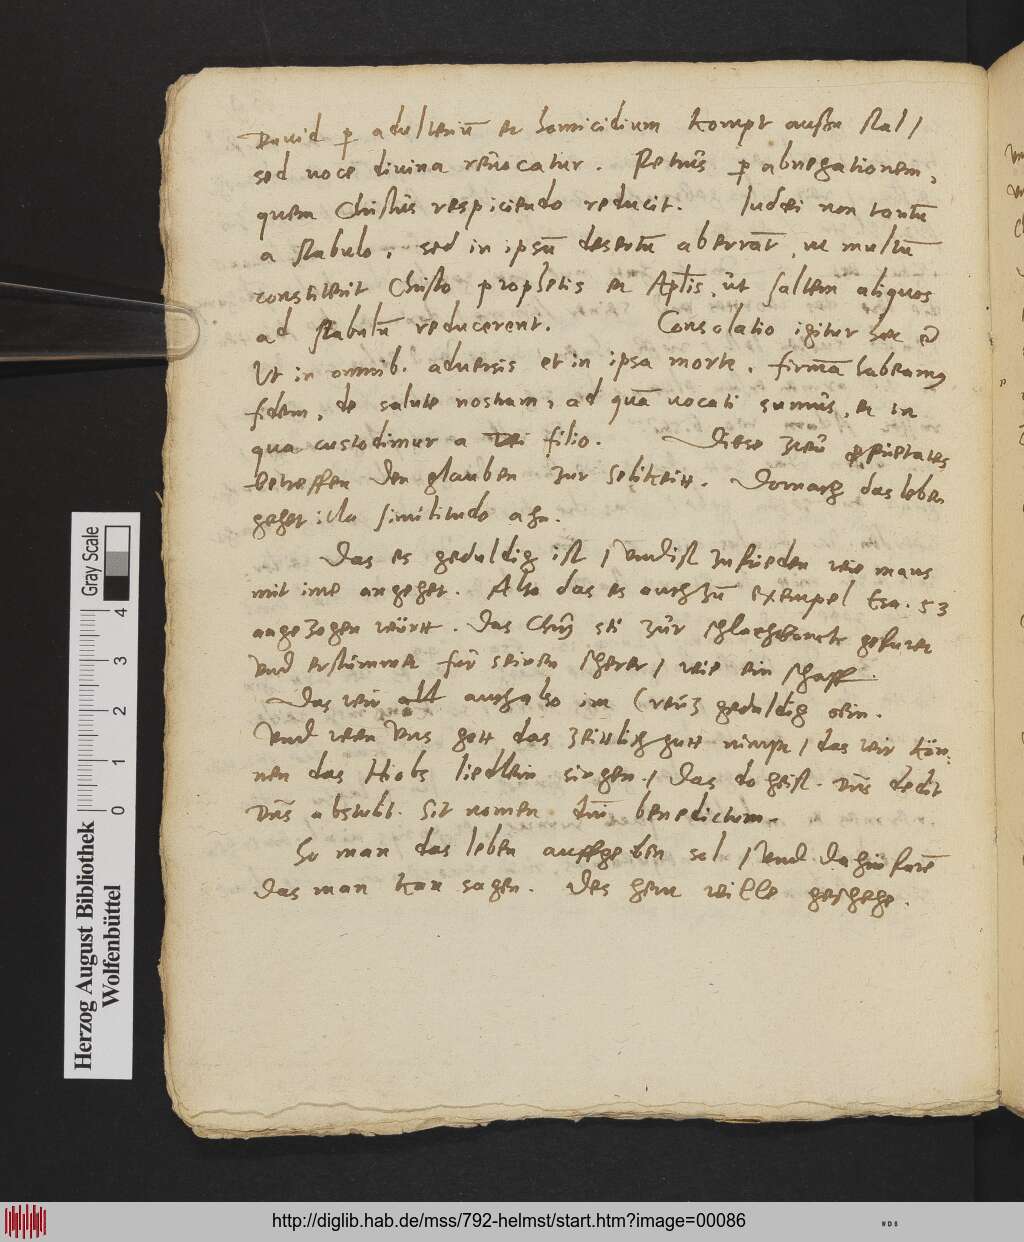 David p adulteriū et homicidium kompt ausm stal /
sed voce divina revocatur. Petrus p abnegationem,
quem Christus respiciendo reducit. Iudei non tantū
a stabulo, sed in ipsū desertū aberrāt, ut multū
constiterit Christo prophetis et Aplīs, ut saltem aliquos
ad stabulū reducerent. Consolatio igitur hec ē
Ut in omnib. adversis et in ipsa morte, firmā habeamus
fidem, de salute nostram, ad quā vocati sumus, et in
qua custodimur a Dei filio. Diese zweū pprietates
betreffen den glauben zur selikeitt. Dornach das leben
gehet illa similitudo ahn.
Das es geduldig ist / und ist zufrieden wie mans
mit ime angehet. Also das es auch zū exempel Esa. 53
angezogen württ. Das Chrūs sei zur schlachtbanck gefuret
und erstummet für seinen scherer / wie ein schaff.
Das wir all auch also im Creutz geduldig sein.
Und wen uns gott das zeittlich gutt nimpt / das wir kön-
nen das Hiobs liedlein singen / Das do heist. Dns dedit
Dns abstulit. Sit nomen dni benedictum.
So man das leben auffgeben sol / Und dahin farē
das man kan sagen. Des hern wille geschehe.
Herzog August Bibliothek
Wolfenbüttel
Gray Scale
0 1 2 3 4
http://diglib.hab.de/mss/792-helmst/start.htm?image=00086